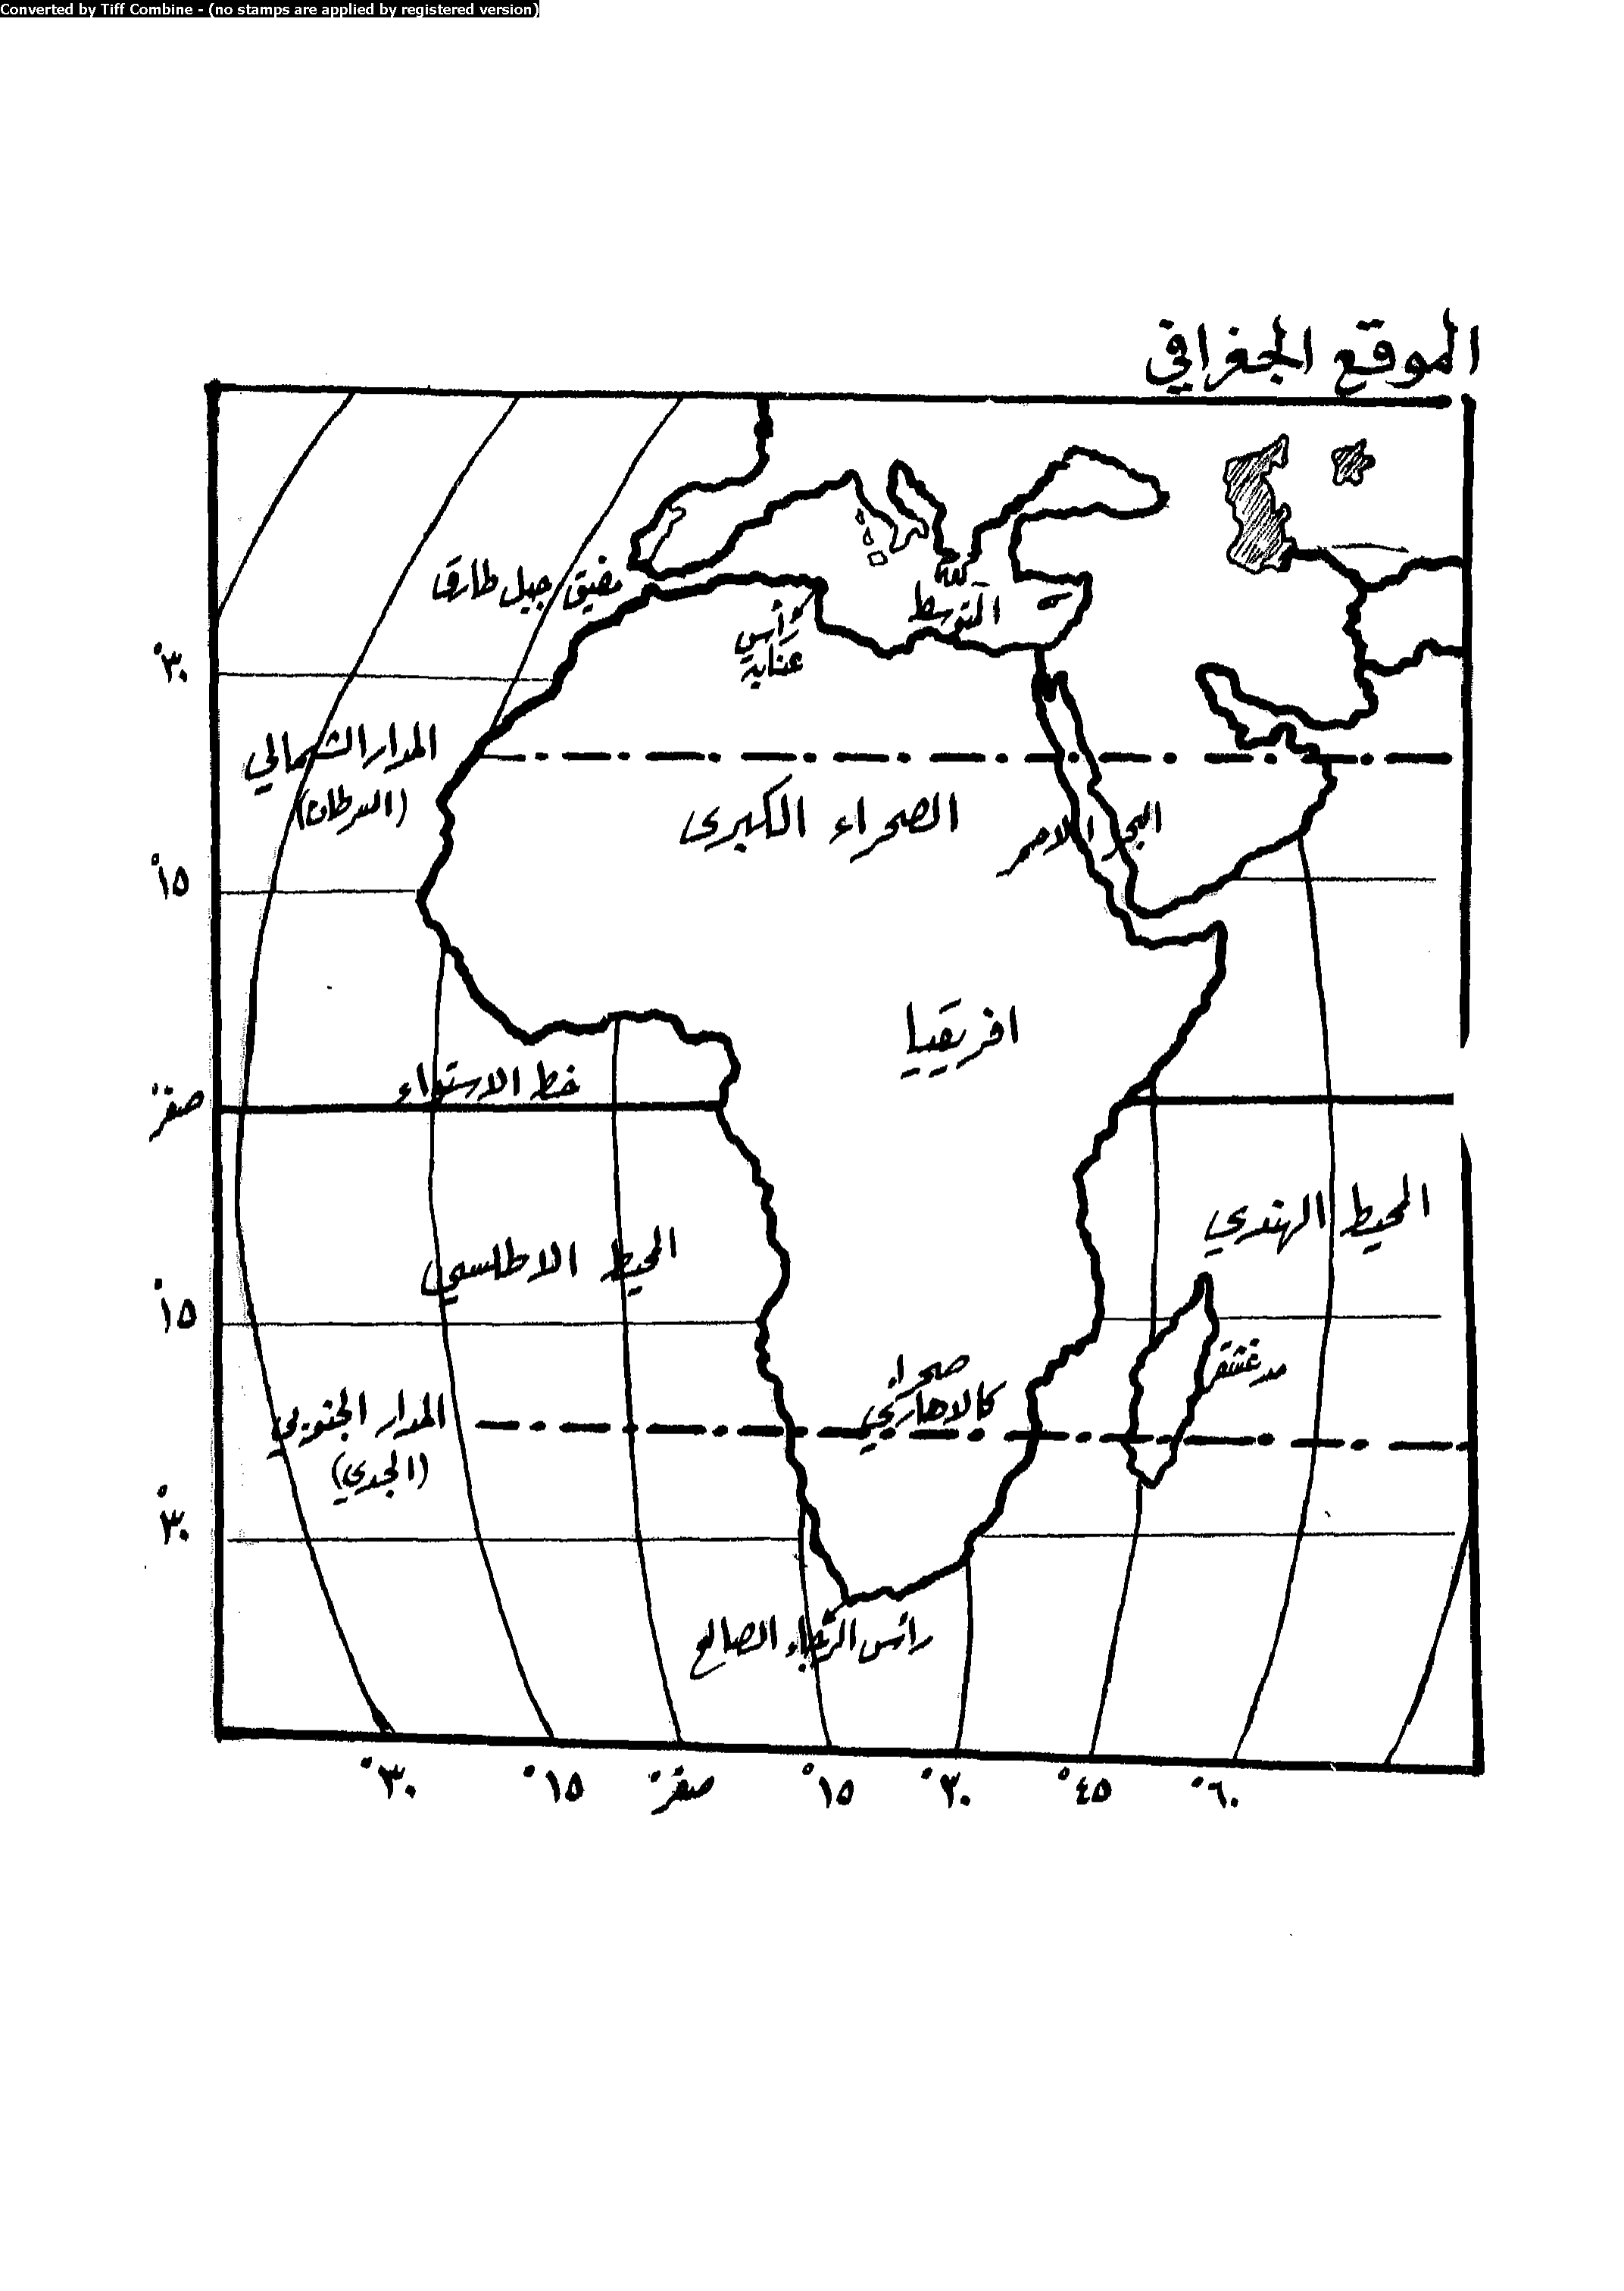 Converted by Tiff Combine - (no stamps are applied by registered version)
الموقع الجغرافي
مضيق جبل طارق
المتوسط
رأس
عنابه
°٣٠
المدار الشمالي
(السرطان)
الصحراء الكبرى
البحر الاحمر
°١٥
افريقيا
خط الاستواء
صفر°
المحيط الهندي
المحيط الاطلسي
°١٥
مدغشقر
صحراء
كالاهاري
المدار الجنوبي
(الجدي)
°٣٠
رأس الرجاء الصالح
°٣٠ °١٥ صفر° °١٥ °٣٠ °٤٥ °٦٠